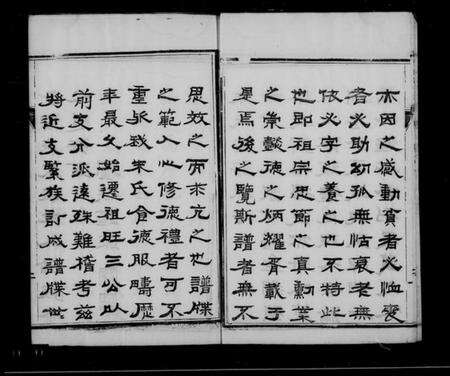 亦因之感動貧者必恤喪
者必助幼孤無怙衰老無
依必字之養之也不特此
也即祖宗忠節之真勳業
之崇懿德之炳耀胥載于
是焉後之覽斯譜者無不
思效之而求充之也譜牒
之範人心修德禮者可不
重哉我宋氏食德服疇歷
年最久始遷祖旺三公以
前支分派遠殊難稽考茲
將近支緊族訂成譜牒世